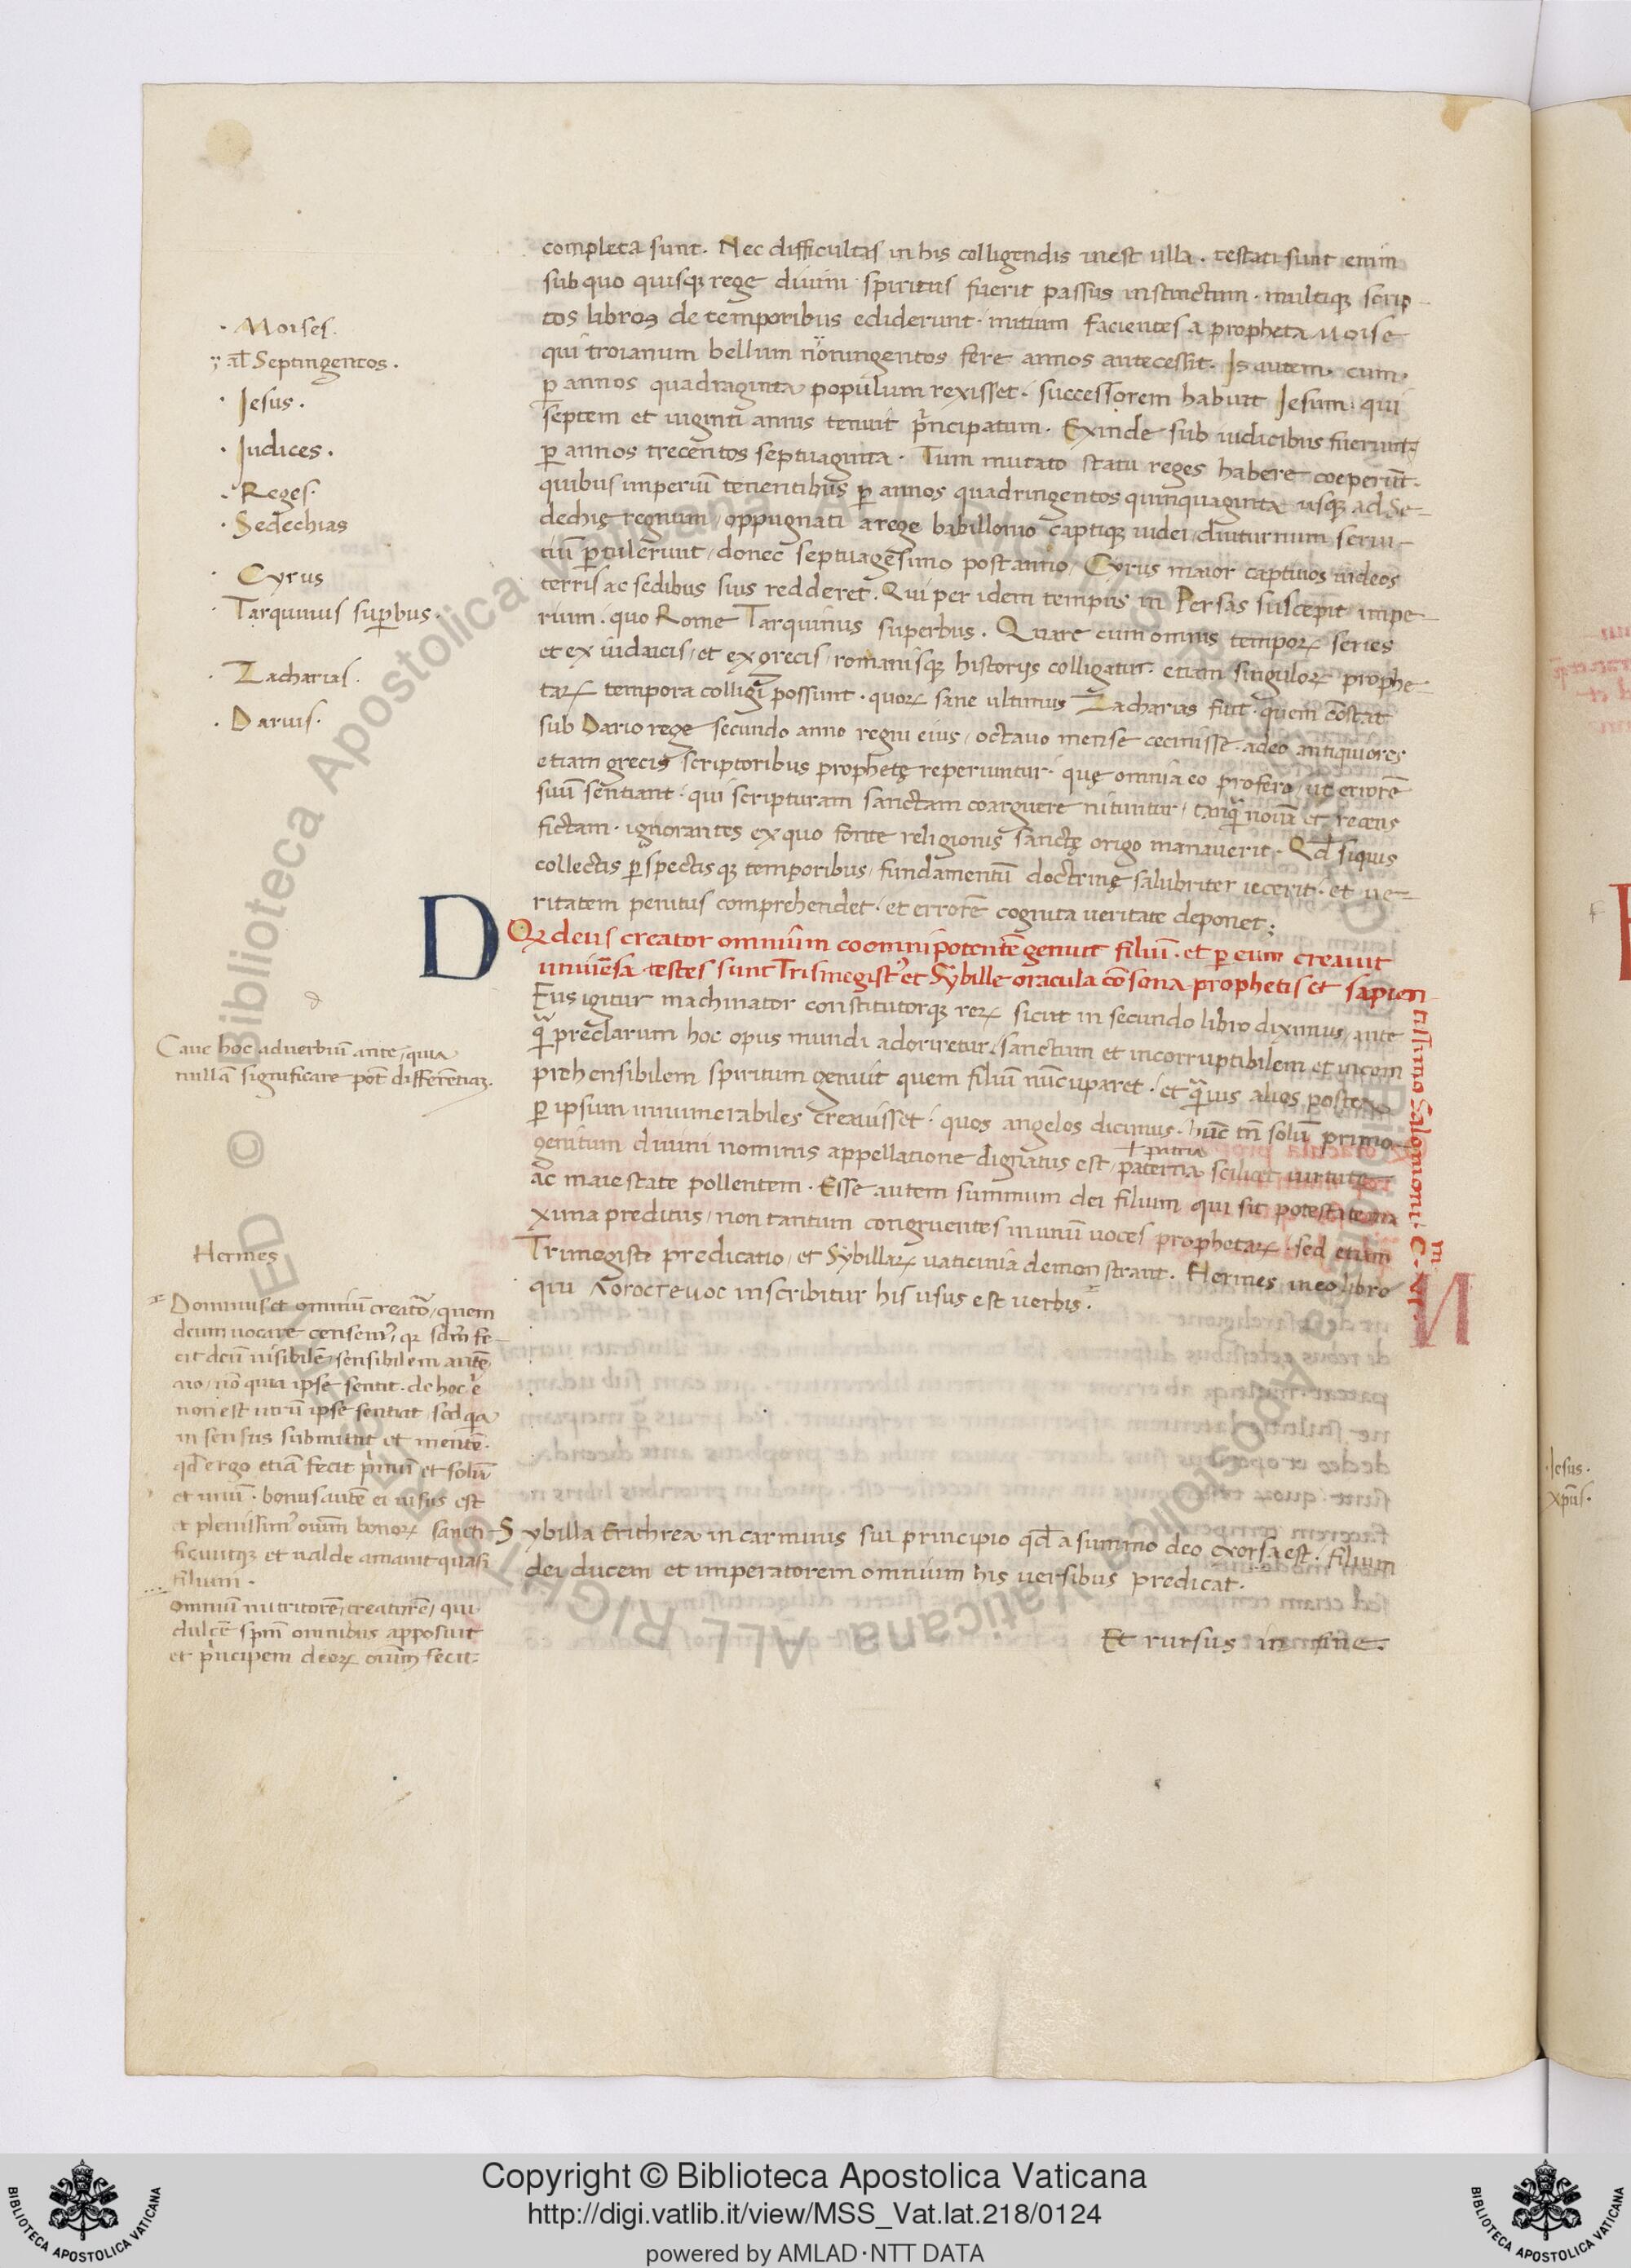 completa sunt. Nec difficultas in his colligendis inest ulla. testati sunt enim
sub quo quisq; rege diuini spiritus fuerit passus instinctum. multiq; scrip-
tos libros de temporibus ediderunt. initium facientes a propheta Moise
qui troianum bellum noningentos fere annos antecessit. Is autem. cum
ꝑ annos quadraginta populum rexisset. successorem habuit Iesum. qui
septem et uiginti annis tenuit pͥncipatum. Exinde sub iudicibus fuerunt
ꝑ annos trecentos septuaginta. Tum mutato statu reges habere coeperūt.
quibus imperiū tenentibus ꝑ annos quadringentos quinquaginta usq; ad Se-
dechię regnum / oppugnati a rege babillonio captiq; iudei / diuturnum serui-
tiū ꝑtulerunt / donec septuagesimo post anno / Cyrus maior captiuos iudeos
terris ac sedibus suis redderet. Qui per idem tempus in Persas suscepit impe-
rium. quo Rome Tarquinius superbus. Quare cum omnis tempoꝝ series
et ex iudaicis / et ex grecis / romanisq; historijs colligatur. etiam singuloꝝ prophe-
taꝝ tempora colligi possunt. quoꝝ sane ultimus Zacharias fuit. quem cōstat
sub Dario rege secundo anno regni eius / octauo mense cecinisse. adeo antiquiores
etiam grecis scriptoribus prophetę reperiuntur. quę omnia eo profero / ut errorē
suū sentiant. qui scripturam sanctam coarguere nituntur / tanꝗ nouā et recens
fictam. ignorantes ex quo fonte religionis sanctę origo manauerit. Qđ siquis
collectis ꝑspectisq; temporibus / fundamentū doctrinę salubriter iecerit. et ue-
ritatem penitus comprehendet. et errorē cognita ueritate deponet:
Qꝫ deus creator omnium coomnipotentē genuit filiū. et ꝑ eum creauit
uniuersa testes sunt Trismegistꝰ et Sybille oracula cōsona prophetis et sapien
tissimo Salomoni.
D
Eus igitur machinator constitutorq; reꝝ sicut in secundo libro diximus / ante
ꝗ preclarum hoc opus mundi adoriretur. sanctum et incorruptibilem et incom
prehensibilem spiritum genuit quem filiū nūcuparet. et ꝗuis alios postea
ꝑ ipsum innumerabiles creauisset. quos angelos dicimus. hūc tn̄ solū primo-
genitum diuini nominis appellatione dignatus est / paterna scilicet uirtute
+ patria
ac maiestate pollentem. Esse autem summum dei filium qui sit potestate ma
xima preditus / non tantum congruentes in unū uoces prophetaꝝ. sed etiam
Trimegisti predicatio / et Sybillaꝝ uaticinia demonstrant. Hermes in eo libro
qui λογοςτελιος inscribitur his usus est uerbis.
Sybilla Erithrea in carminis sui principio qđ a summo deo exorsa est. filium
dei ducem et imperatorem omnium his uersibus predicat.
Et rursus in fine.
. Moises.
al Septingentos.
. Iesus.
. Iudices.
. Reges.
. Sedechias
. Cyrus
. Tarquinius suꝑbus.
. Zacharias.
. Darius.
Caue hoc aduerbiū ante / quia
nullā significare pot differētiaꝫ.
Hermes
Dominus et omniū creator / quem
deum uocare censemꝰ / qꝫ scđm fe-
cit deū uisibilē / sensibilem autē
aio / nō quia ipse sentit. de hoc .n.
non est utrū ipse sentiat / sed qa
in sensus submittit et mentē.
qđ ergo etiā fecit pͥmū et solū
et unū. bonus autē ei uisus est
et plenissimꝰ oium bonoꝝ sancti-
ficauitq; et ualde amauit quasi
filium.
Omniū nutritorē / creatorē / qui
dulcē spm̄ omnibus apposuit
et pͥncipem deoꝝ oium fecit.
N
Iesus.
Xpūs.
Copyright © Biblioteca Apostolica Vaticana
http://digi.vatlib.it/view/MSS_Vat.lat.218/0124
powered by AMLAD·NTT DATA
BIBLIOTECA APOSTOLICA VATICANA
BIBLIOTECA APOSTOLICA VATICANA